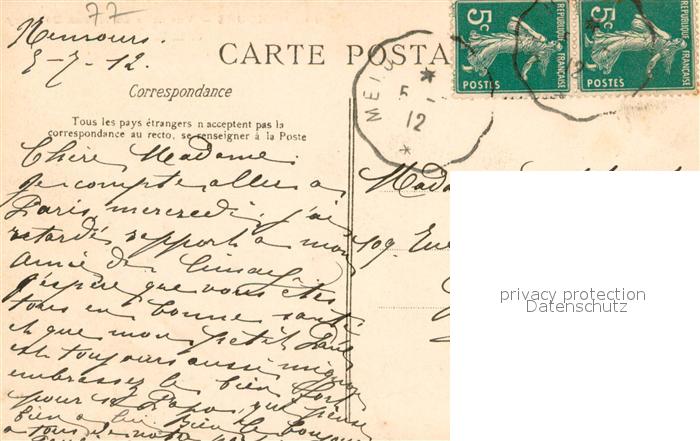 77
Nemours.
5-7-12.
CARTE POSTA
Correspondance
Tous les pays étrangers n'acceptent pas la
correspondance au recto, se renseigner à la Poste
5c
RÉPUBLIQUE FRANÇAISE
POSTES
5c
RÉPUBLIQUE FRANÇAISE
POSTES
5
12
12
Chère Madame
Je compte aller a
Paris, mercredi, j'ai
retardés rapport a mon
amie de
j'espère que vous êtes
tous en bonne santé
et que mon petit
est toujours aussi mignon
embrassez le bien fort
pour sa Papa, qui pense
bien a lui bien le bonjour
a tous de notre
Mada
109. Rue
privacy protection
Datenschutz